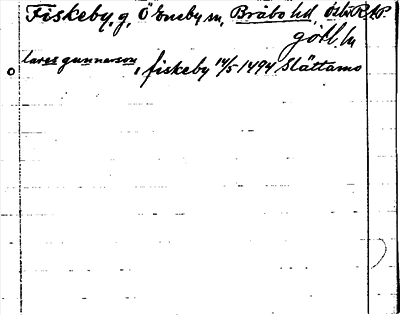 Fiskeby, g, Ö Eneby sn, Bråbo hd, Östergötl. ln
lares gunnarson, i fiskeby 14/5 1494 Slättamo